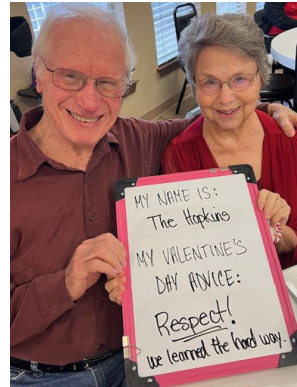 MY NAME IS:
The Hopkins
MY VALENTINE'S
DAY ADVICE:
Respect!
we learned the hard way.